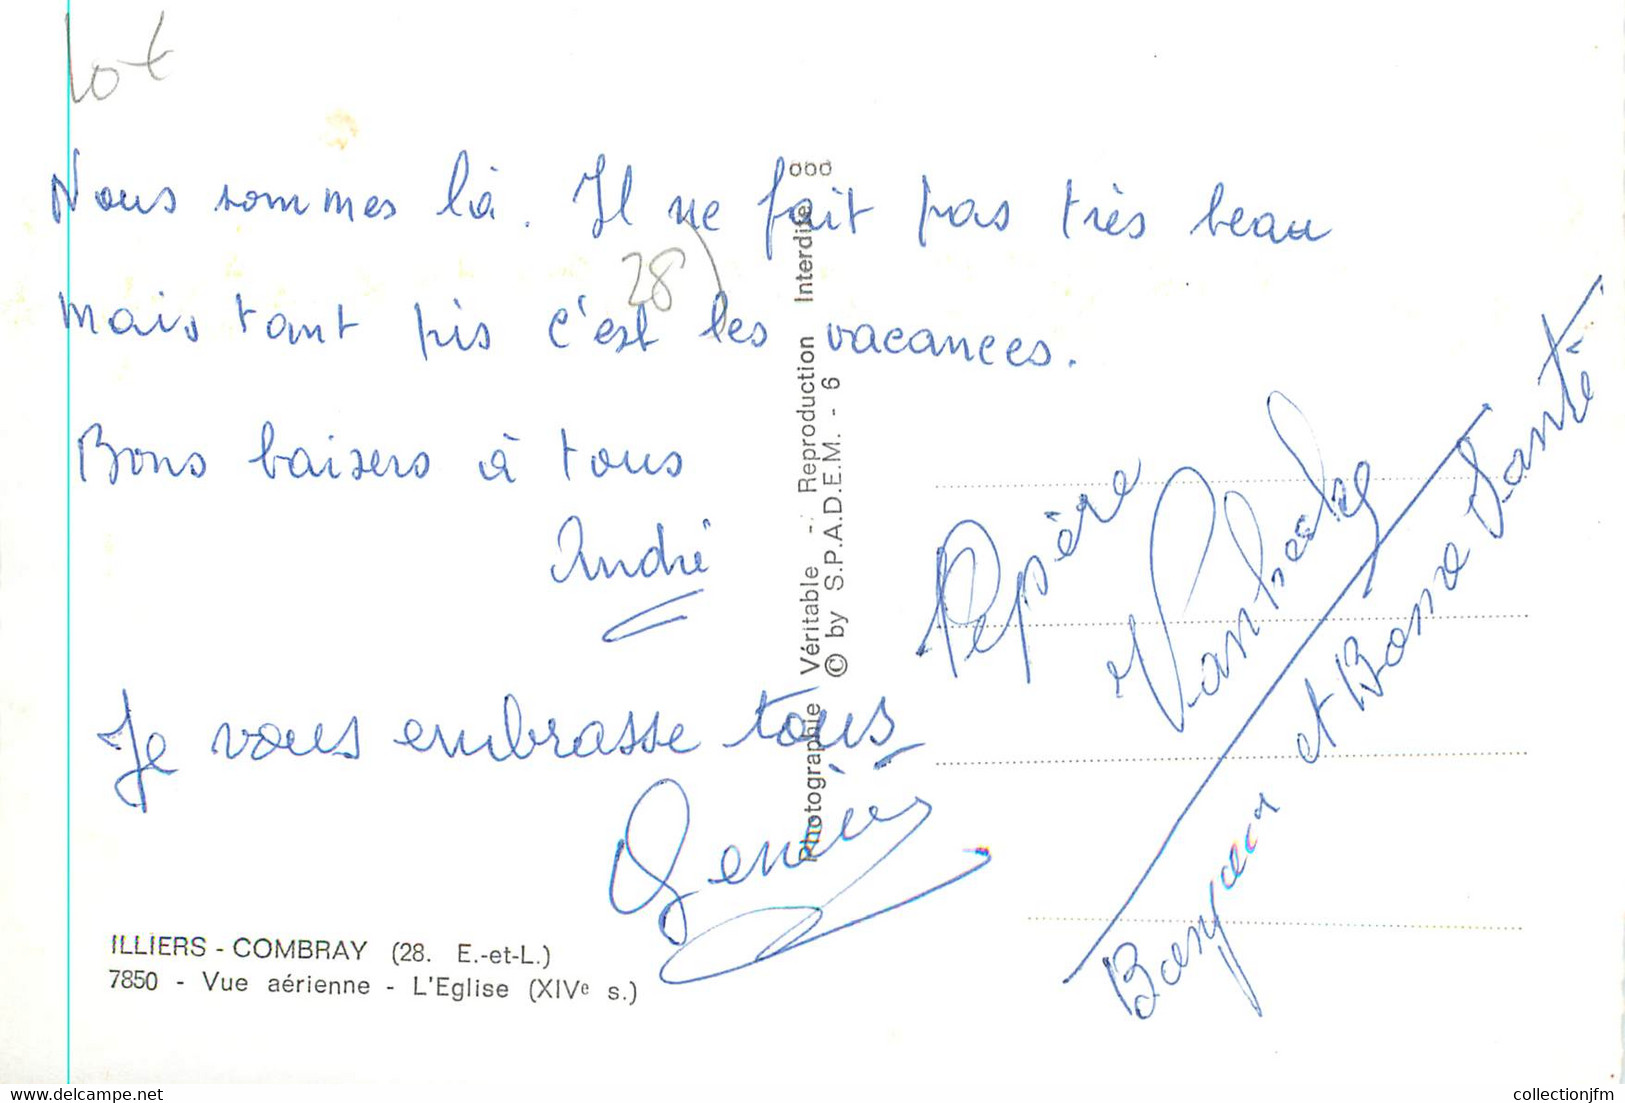 lot
Nous sommes là. Il ne fait pas très beau
28)
mais tant pis c'est les vacances.
Bons baisers à tous
André
Je vous embrasse tous
Pépère
et Bonne Santé
Photographie Véritable - Reproduction Interdite
© by S.P.A.D.E.M. - 6
ILLIERS - COMBRAY (28. E.-et-L.)
7850 - Vue aérienne - L'Eglise (XIVe s.)
collectionjfm